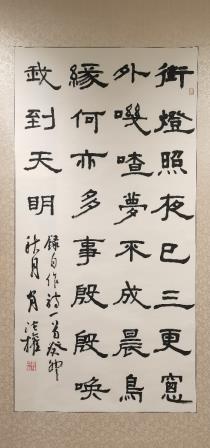 街燈照夜已三更窗
外嘰喳夢不成晨鳥
緣何亦多事殷殷喚
我到天明
錄自作詩一首癸卯
秋月 肖法權